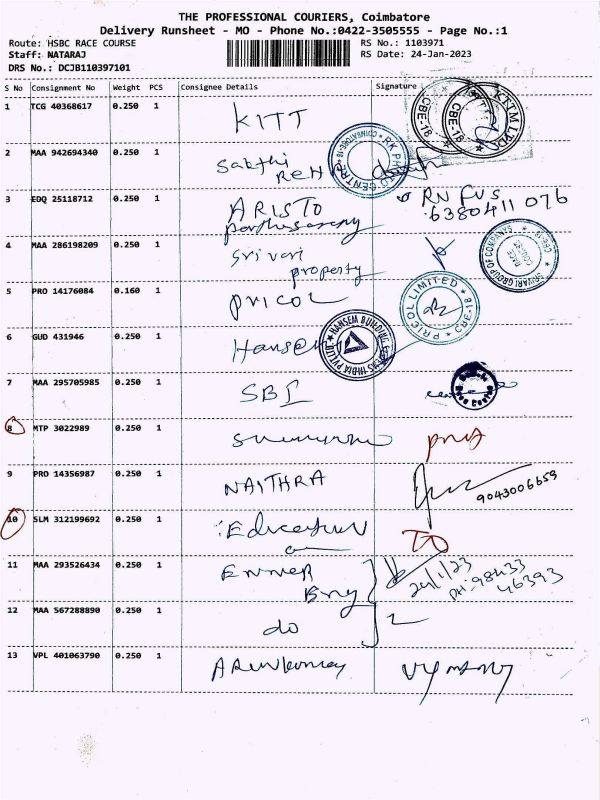 THE PROFESSIONAL COURIERS, Coimbatore
Delivery Runsheet - MO - Phone No.:0422-3505555 - Page No.:1
Route: HSBC RACE COURSE RS No.: 1103971
Staff: NATARAJ RS Date: 24-Jan-2023
DRS No.: DCJB110397101
S No Consignment No Weight PCS Consignee Details Signature
1 TCG 40368617 0.250 1 KITT
CBE-18 CBE-18
2 MAA 942694340 0.250 1 Sakthi
3 EDQ 25118712 0.250 1 ARISTO
6380411076
4 MAA 286198209 0.250 1 Srivari
property
SRIVARI GROUP OF COMPANYS RACE COURSE CBE-18
5 PRO 14176084 0.160 1 PRICOL
PRICOL LIMITED CBE-18
6 GUD 431946 0.250 1 Hansem
7 MAA 295705985 0.250 1 SBI
8 MTP 3022989 0.250 1
9 PRO 14356987 0.250 1 NAITHRA 9043006659
10 SLM 312199692 0.250 1
11 MAA 293526434 0.250 1
24/1/23
PH: 98433
46393
12 MAA 567288890 0.250 1 do
13 VPL 401063790 0.250 1